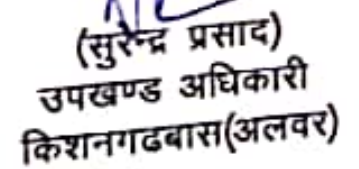 (सुरेन्द्र प्रसाद)
उपखण्ड अधिकारी
किशनगढबास(अलवर)